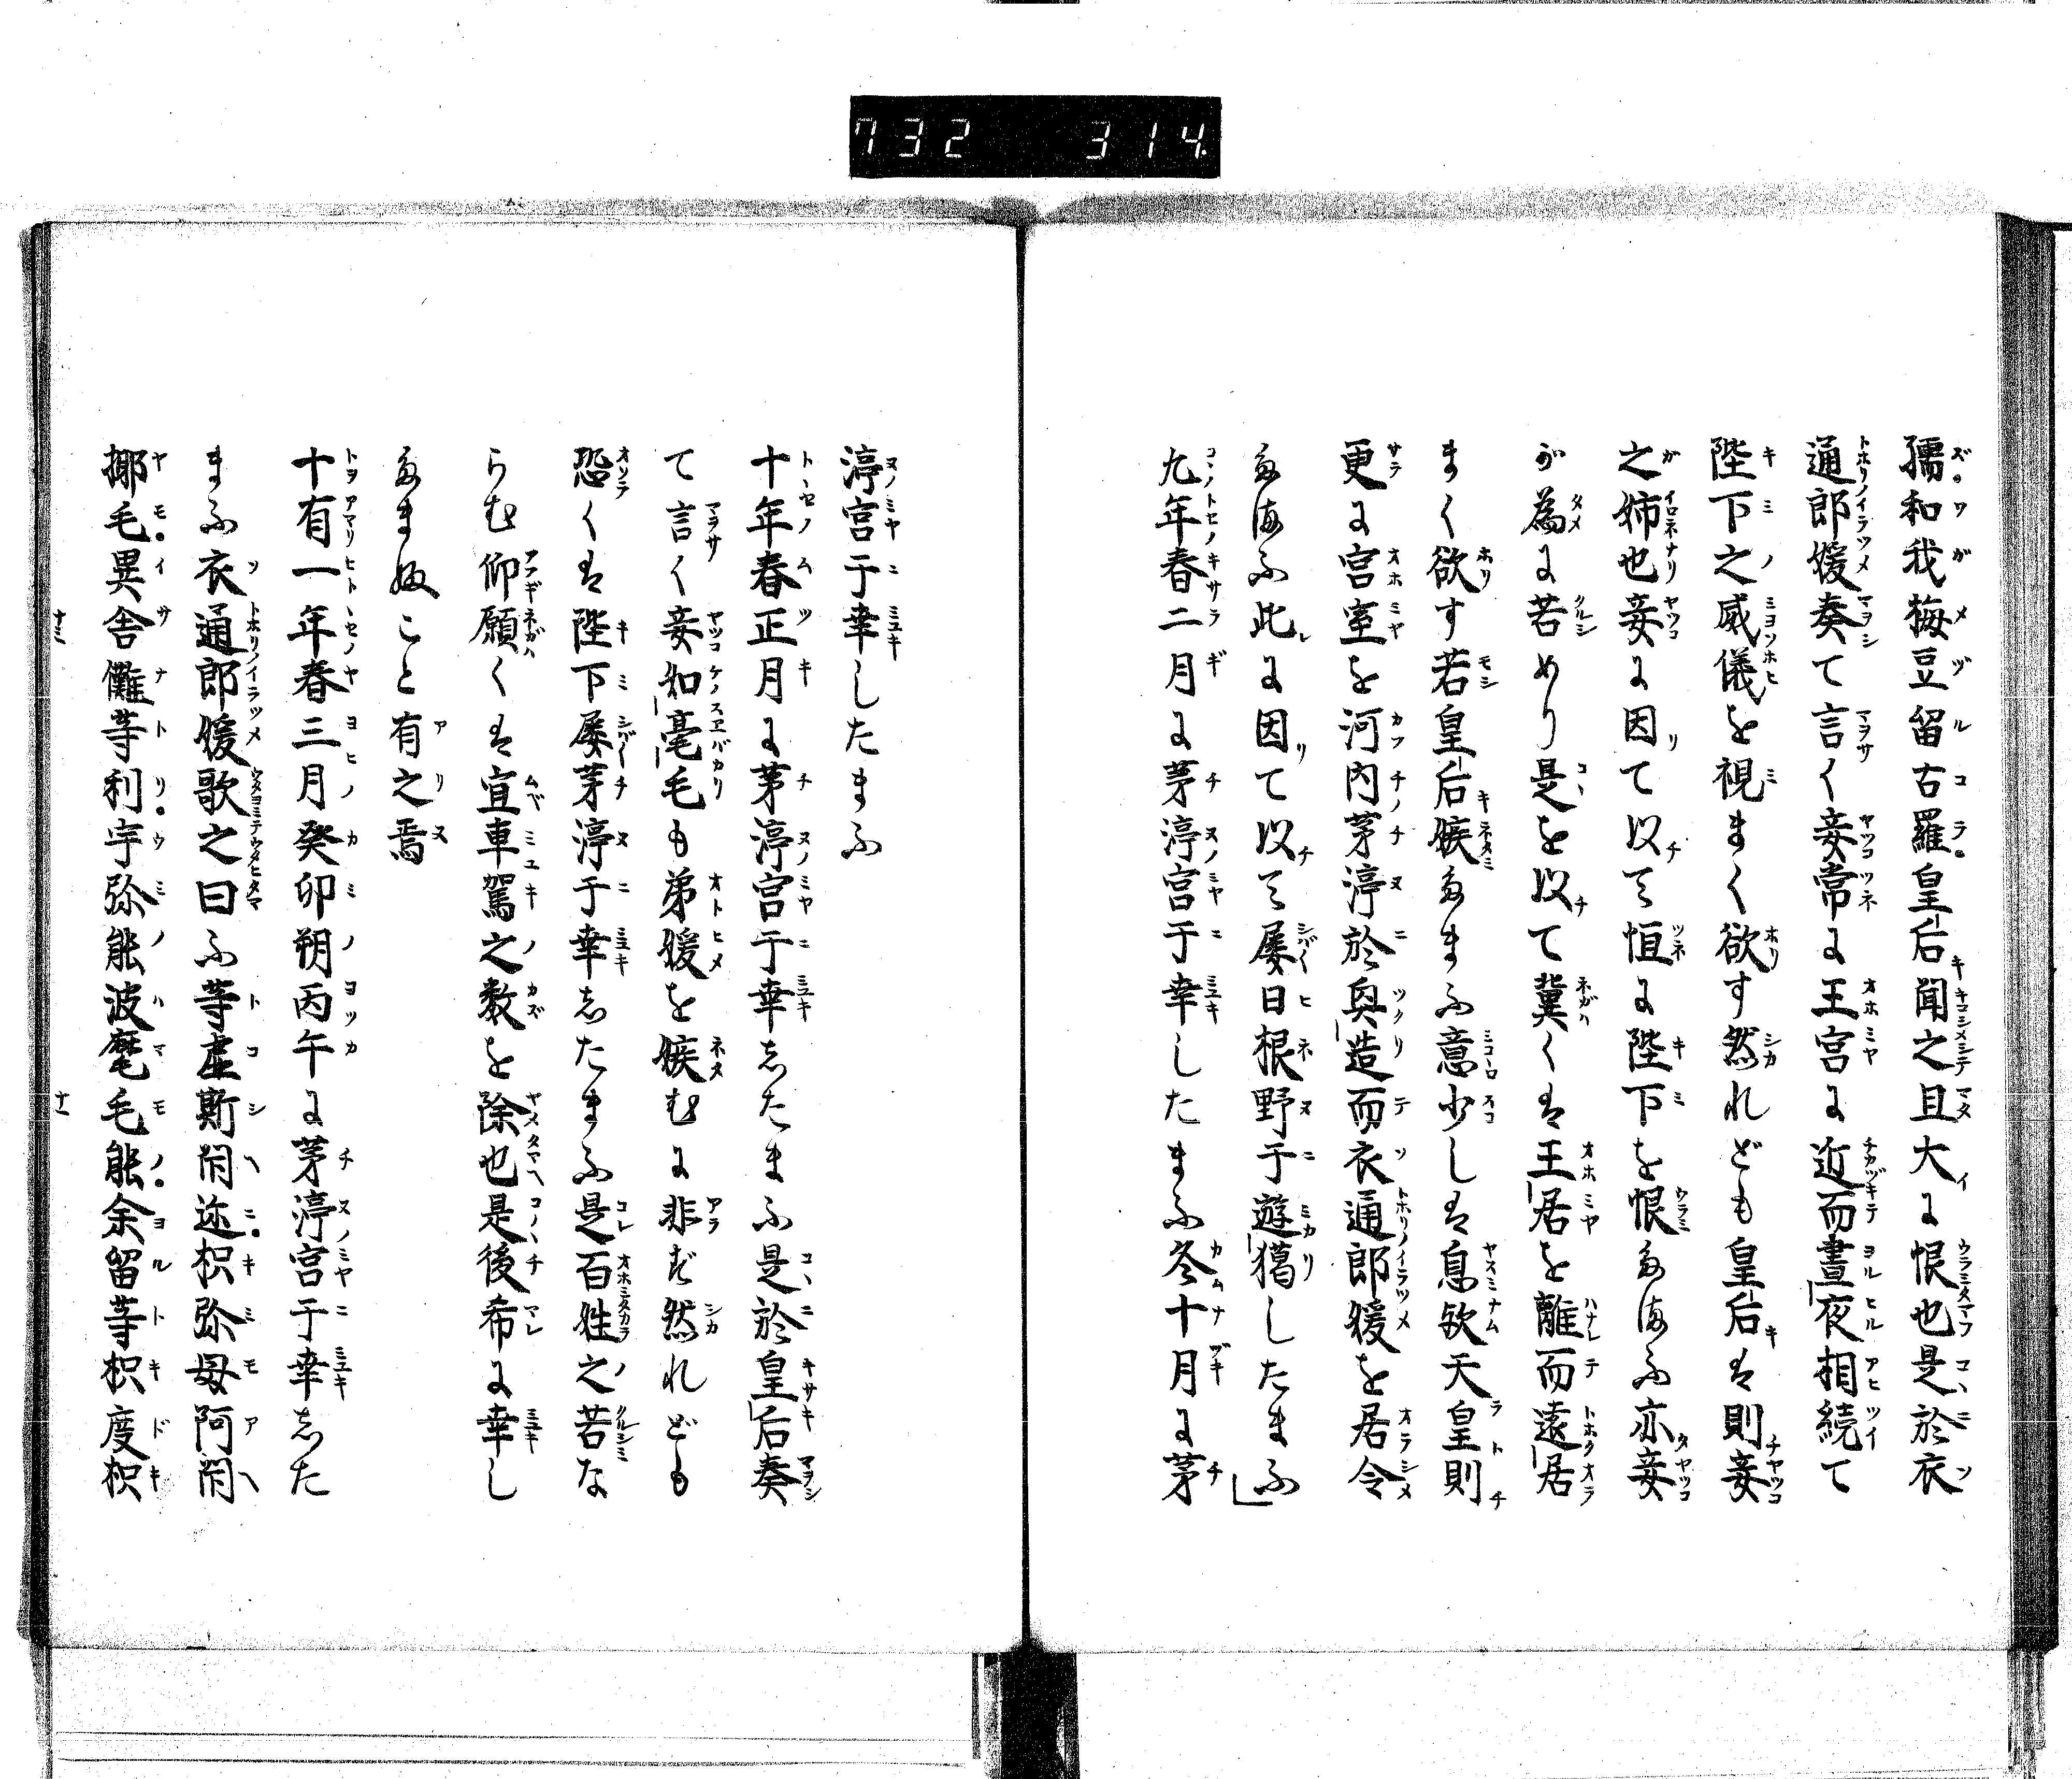 732 314
孺和我梅豆留古羅皇后聞之且大に恨也是於衣
通郎媛奏て言く妾常に王宮に近而晝夜相続て
陛下之威儀を視まく欲す然れども皇后は則妾
之姉也妾に因て以て恒に陛下を恨たまふ亦妾
が為に苦めり是を以て冀くは王居を離而遠居
まく欲す若皇后嫉たまふ意少しは息欤天皇則
更に宮室を河内茅渟於興造而衣通郎媛を居令
たまふ此に因て以て屡日根野于遊獦したまふ
九年春二月に茅渟宮于幸したまふ冬十月に茅
渟宮于幸したまふ
十年春正月に茅渟宮于幸したまふ是於皇后奏
て言く妾如毫毛も弟媛を嫉むに非ず然れども
恐くは陛下屡茅渟于幸したまふ是百姓之苦な
らむ仰願くは宜車駕之数を除也是後希に幸し
たまぬこと有之焉
十有一年春三月癸卯朔丙午に茅渟宮于幸した
まふ衣通郎媛歌之曰ふ等虚斯閇迩枳弥母阿閇
揶毛異舎儺等利宇弥能波麾毛能余留等枳度枳